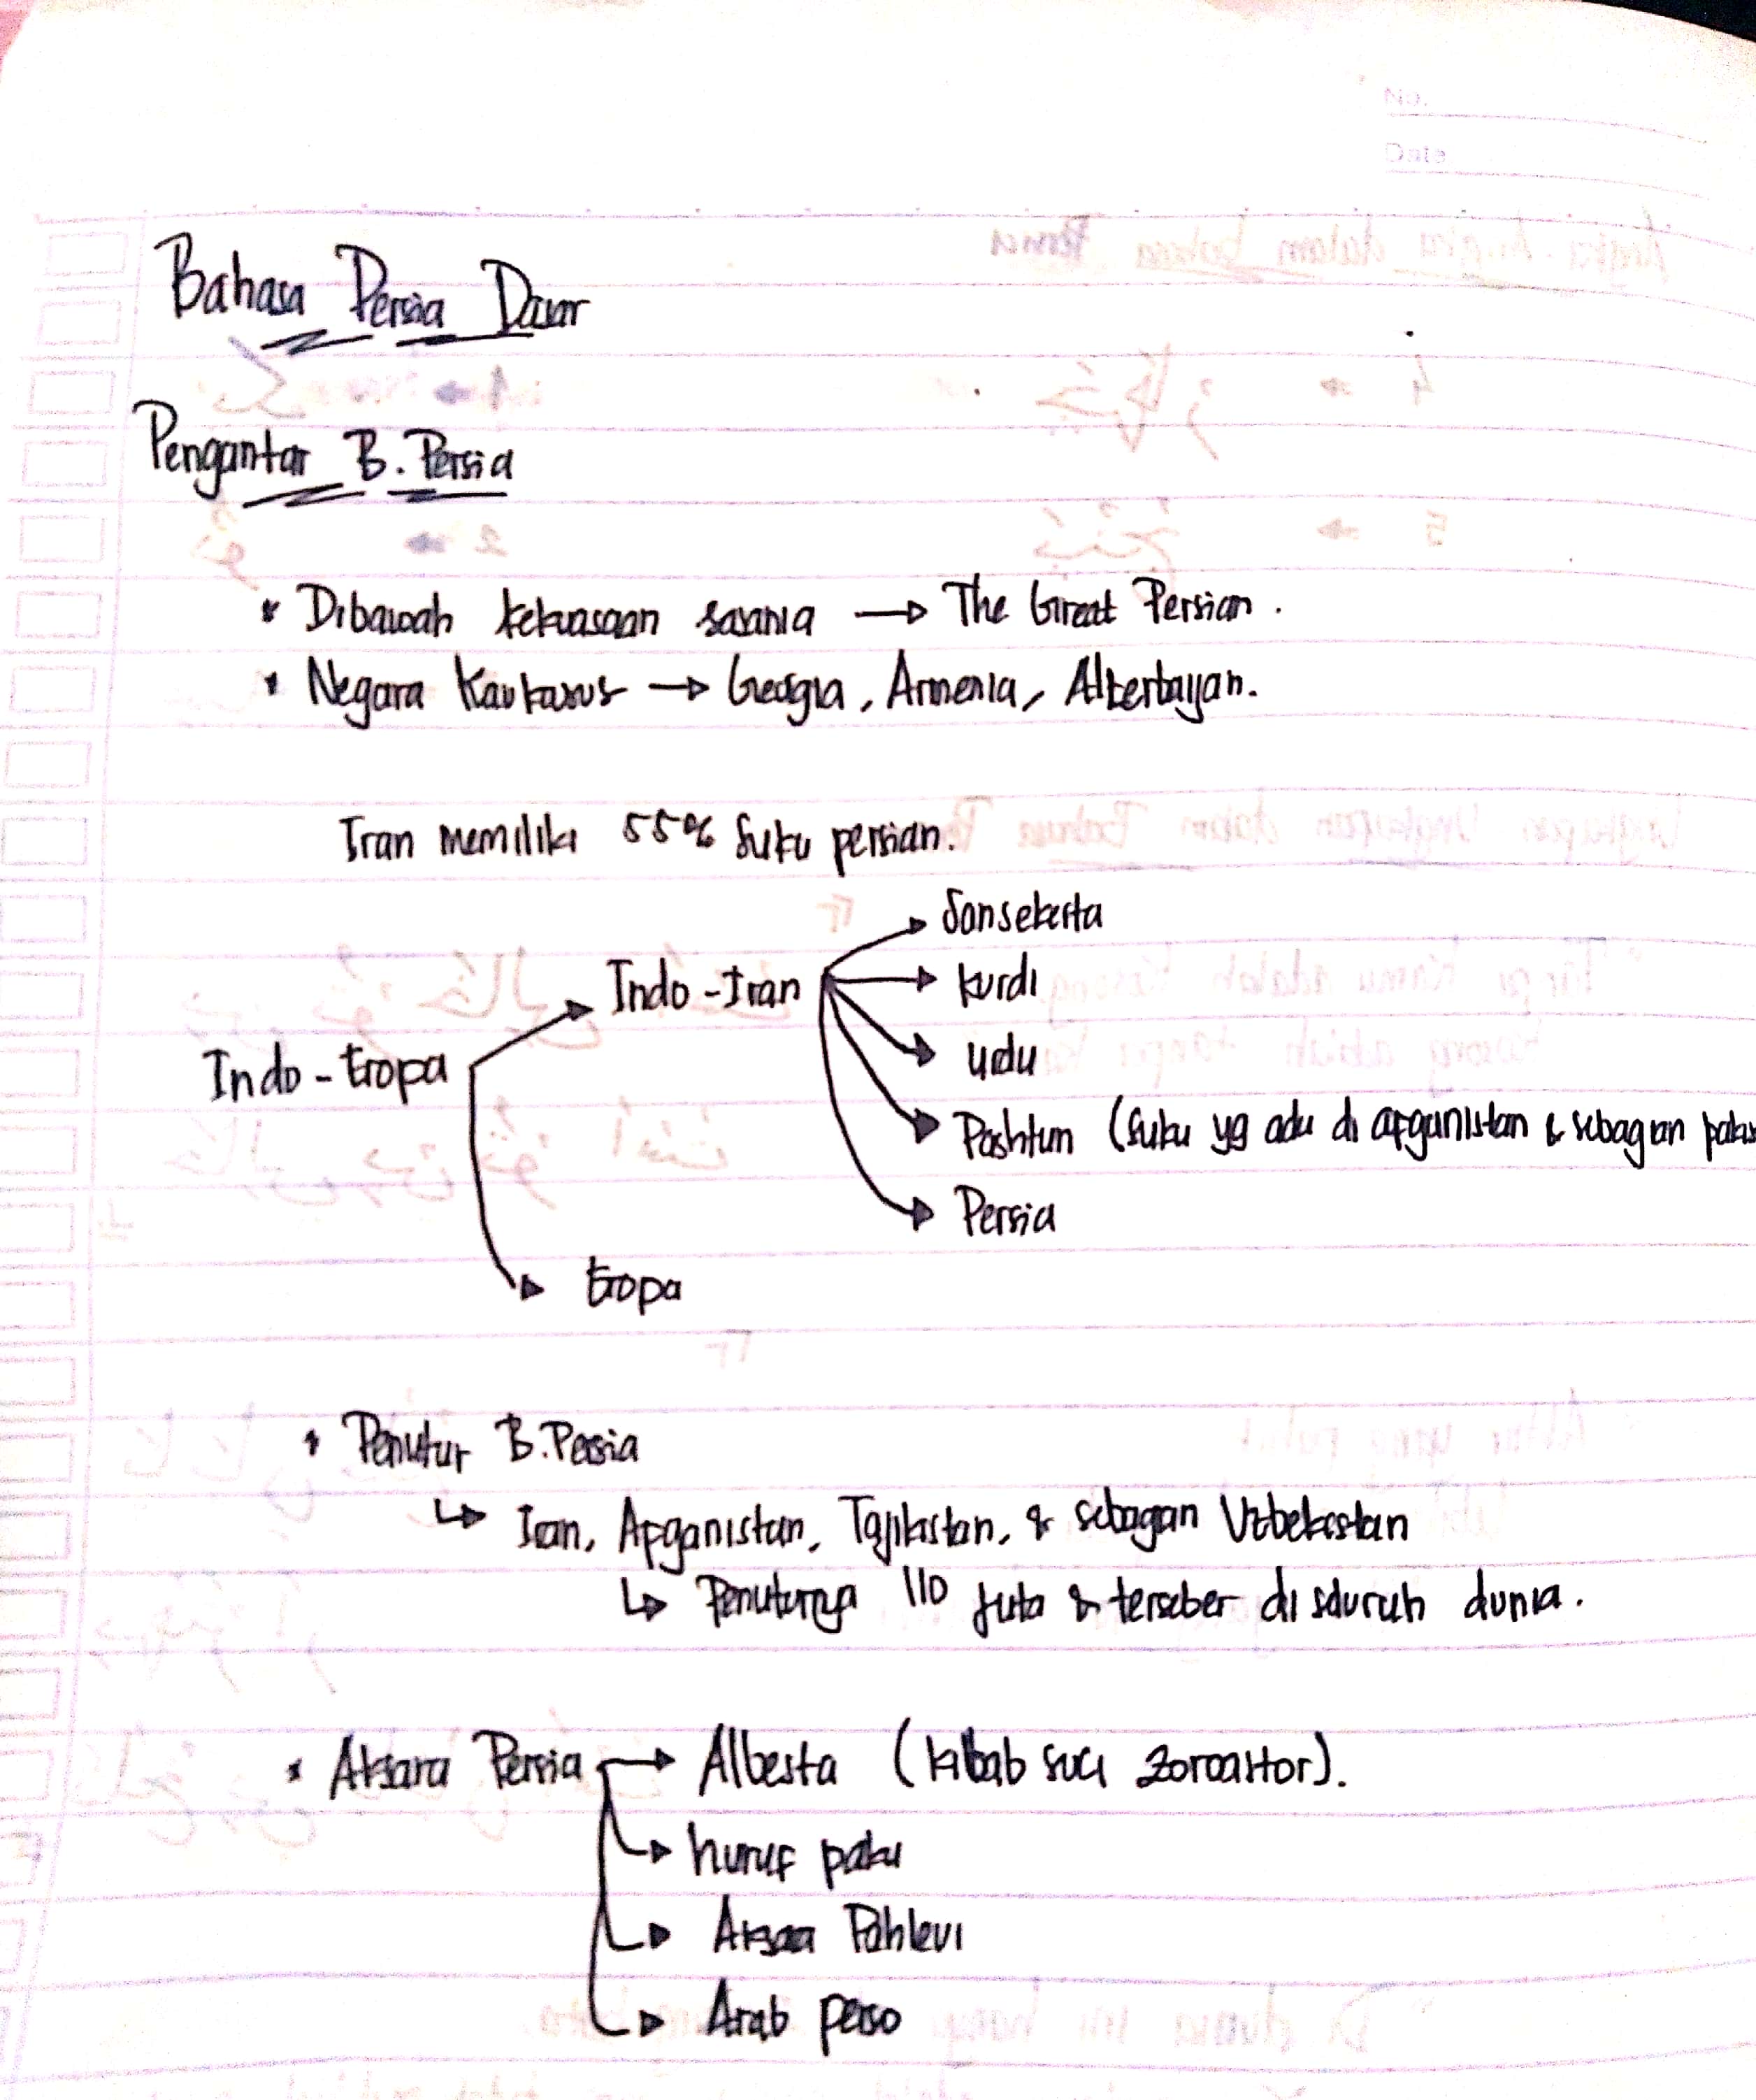 No.
Date
Bahasa Persia Dasar
Pengantar B. Persia
* Dibawah kekuasaan sasania → The Great Persian.
* Negara Kaukasus → Georgia, Armenia, Alberbayan.
Iran memiliki 55% suku persian.
Indo-Eropa
Indo-Iran
Sansekerta
Kurdi
Urdu
Pashtun (suku yg ada di apganistan & sebagian pakis
Persia
Eropa
* Penutur B. Persia
↳ Iran, Apganistan, Tajikistan, & sebagian Uzbekistan
↳ Penuturnya 110 juta & terseber di seluruh dunia.
* Aksara Persia → Albesta (kitab suci Zoroastor).
huruf paku
Aksara Pahlevi
Arab perso